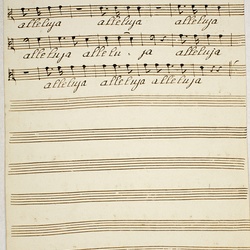 alleluja alleluja alleluja
alleluja allelu - ja alleluja
alleluja alleluja alleluja